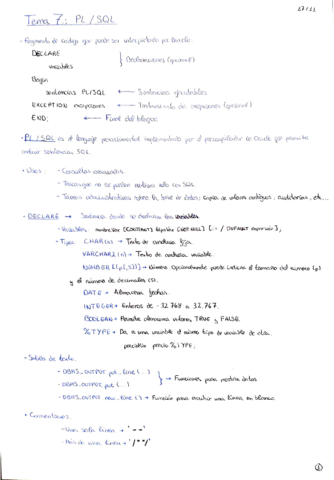 27/11
Tema 7: PL/SQL
- Fragmento de código que puede ser interpretado por Oracle.
DECLARE
variables
Declaraciones (opcional)
Begin
sentencias PL/SQL ← Sentencias ejecutables
EXCEPTION excepciones ← Tratamiento de excepciones (opcional)
END; ← Final del bloque
- PL/SQL es el lenguaje procedimental implementado por el precompilador de Oracle que permite
sentencias SQL.
- Usos: - Consultas avanzadas.
- Tareas que no se pueden realizar sólo con SQL.
- Tareas administrativas sobre la base de datos; copias de valores antiguos, auditorías, etc...
- DECLARE → Sentencia donde se declaran las variables.
- Variables: nombreVar [CONSTANT] tipoVar [NOT NULL] [:= / DEFAULT expresión];
- Tipos: CHAR(n) → Texto de anchura fija.
VARCHAR2(n) → Texto de anchura variable.
NUMBER [(p[,s])] → Número. Opcionalmente puede indicar el tamaño del número (p)
y el número de decimales (s).
DATE → Almacena fechas.
INTEGER → Enteros de -32.768 a 32.767.
BOOLEAN → Permite almacenar valores TRUE y FALSE.
%TYPE → Da a una variable el mismo tipo de variable de otra.
precioVar precio%TYPE;
- Salida de texto:
- DBMS_OUTPUT.put_line(...)
- DBMS_OUTPUT.put(...)
→ Funciones para mostrar datos
- DBMS_OUTPUT.new_line() → Función para escribir una línea en blanco.
- Comentarios:
- Una sola línea → '--'
- Más de una línea → '/**/'
①